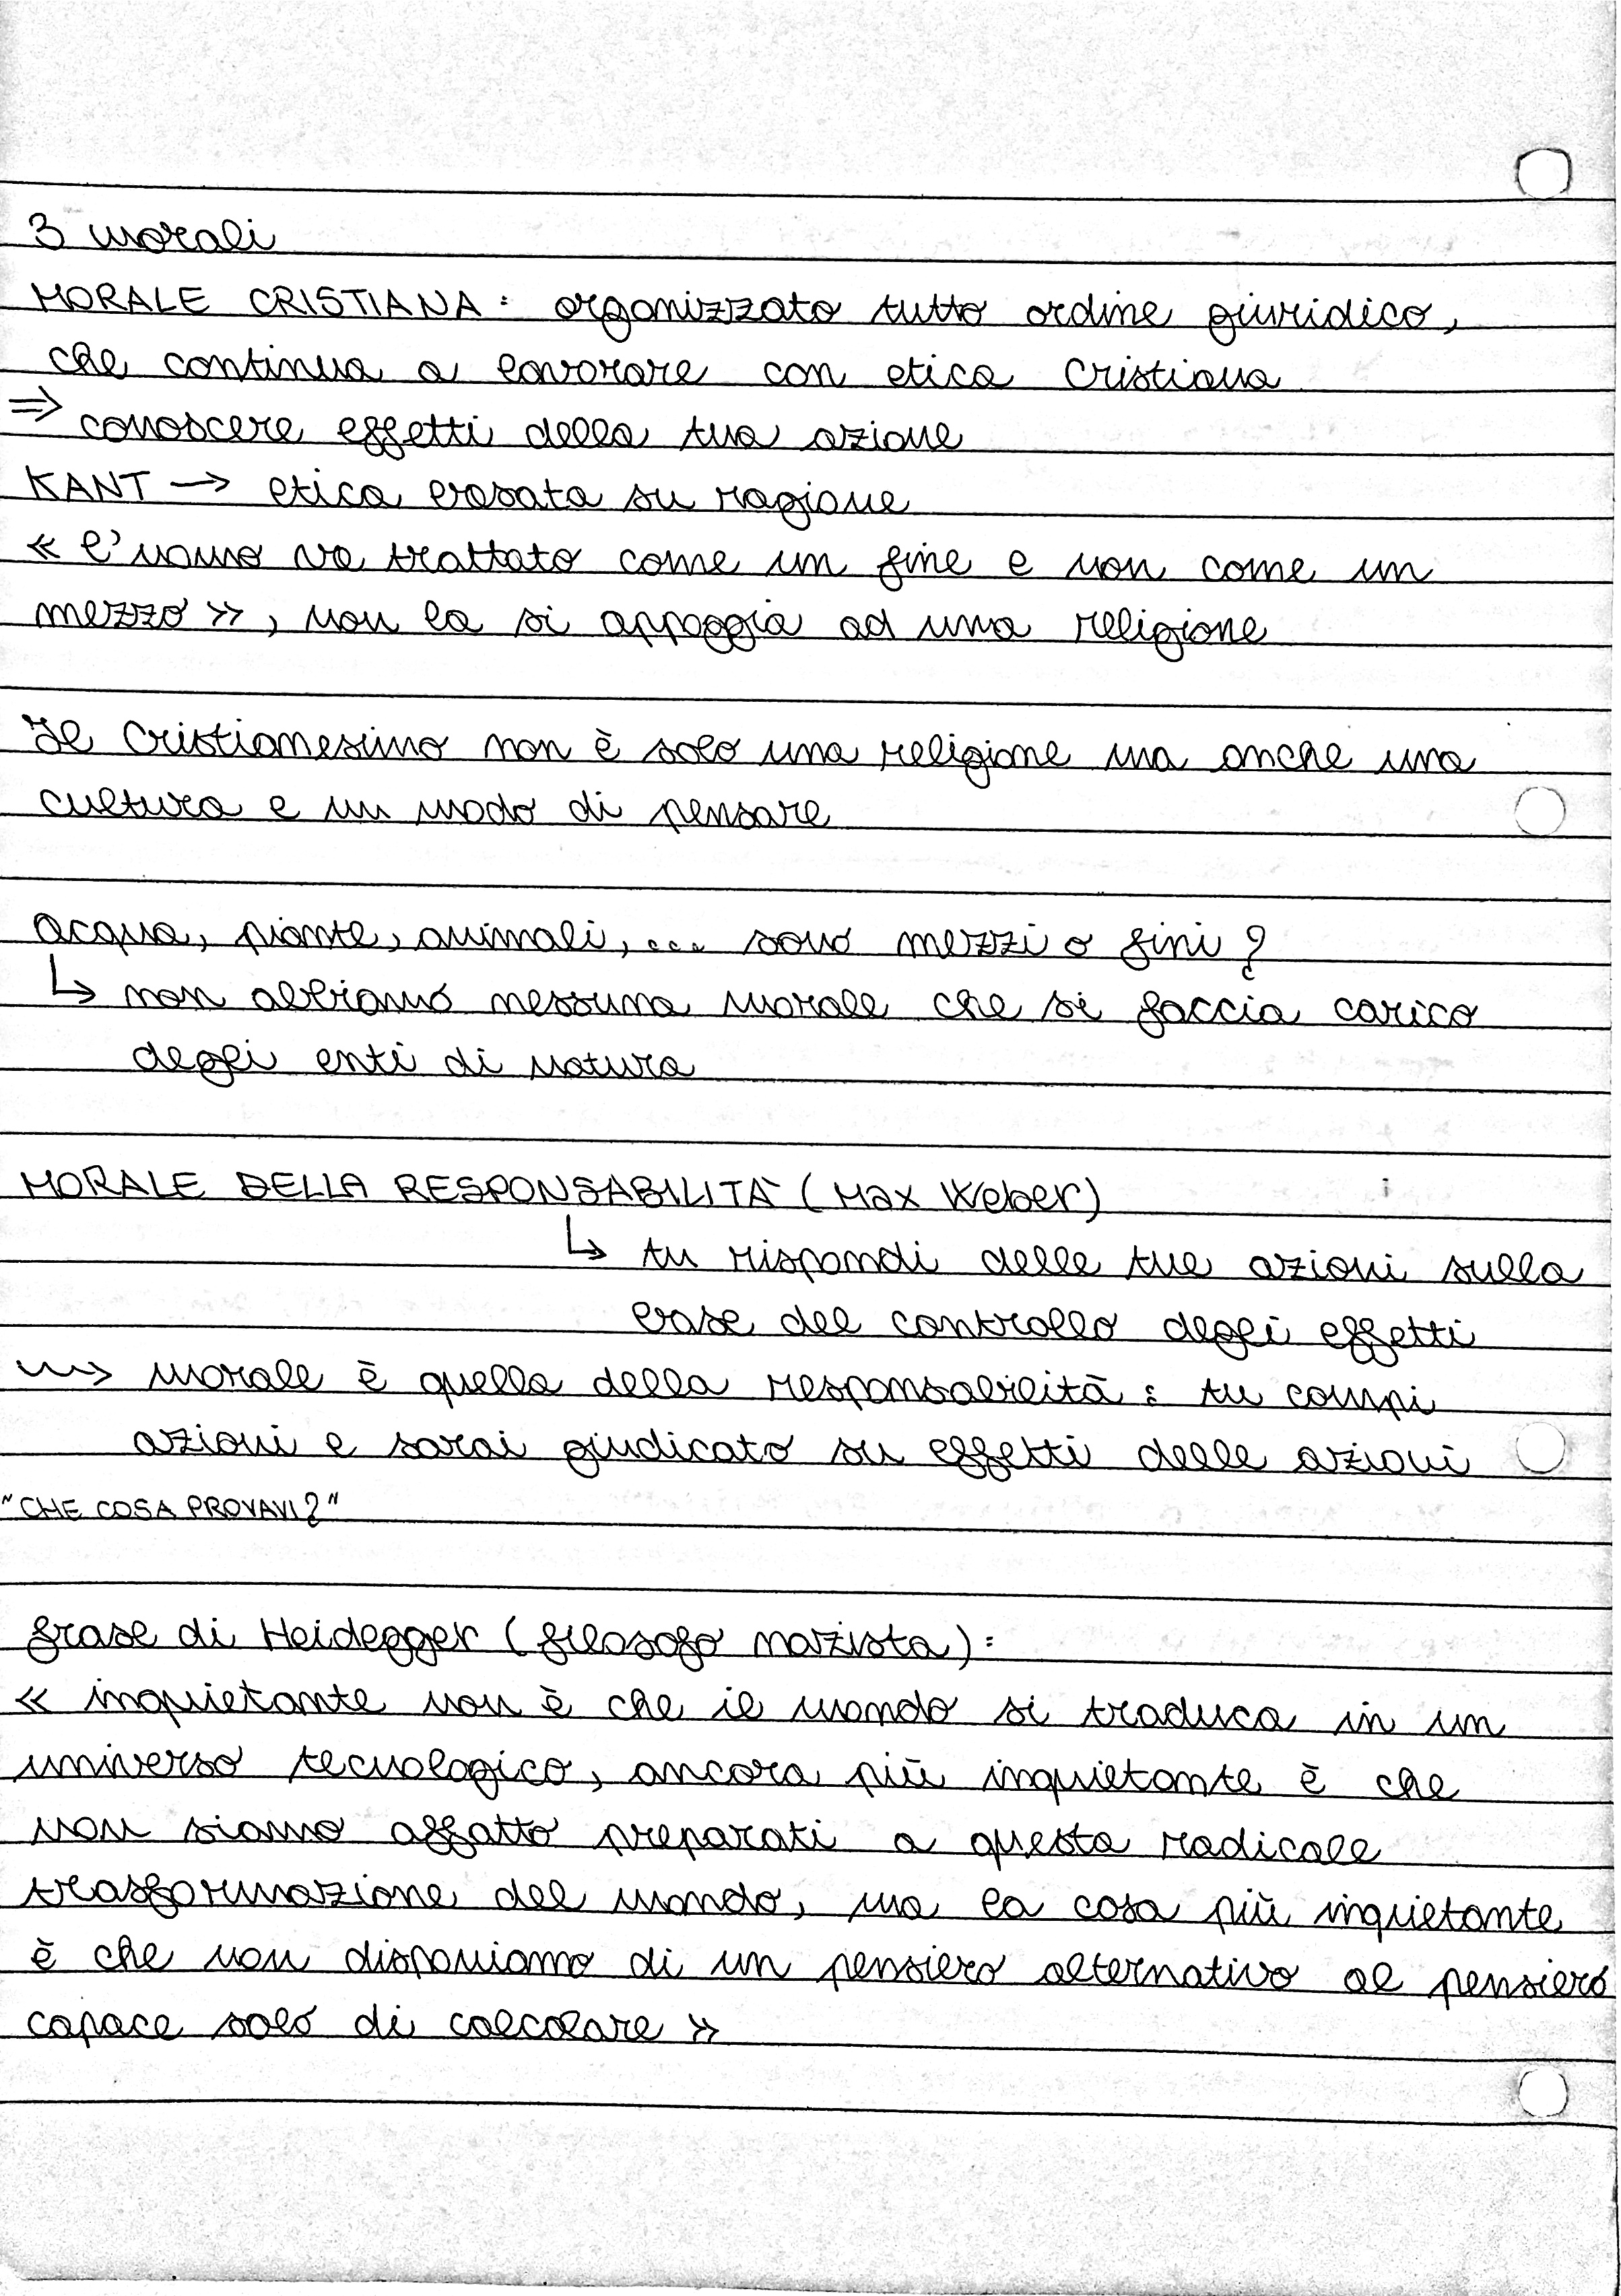 3 morali
MORALE CRISTIANA: organizzato tutto ordine giuridico,
che continua a lavorare con etica cristiana
⇒ conoscere effetti della tua azione
KANT → etica basata su ragione
« l'uomo va trattato come un fine e non come un
mezzo », non la si appoggia ad una religione
Il Cristianesimo non è solo una religione ma anche una
cultura e un modo di pensare
acqua, piante, animali, ... sono mezzi o fini?
↳ non abbiamo nessuna morale che si faccia carico
degli enti di natura
MORALE DELLA RESPONSABILITÀ (Max Weber)
↳ tu rispondi delle tue azioni sulla
base del controllo degli effetti
⇝ morale è quella della responsabilità: tu compi
azioni e sarai giudicato su effetti delle azioni
"CHE COSA PROVAVI?"
frase di Heidegger (filosofo nazista):
« inquietante non è che il mondo si traduca in un
universo tecnologico, ancora più inquietante è che
non siamo affatto preparati a questa radicale
trasformazione del mondo, ma la cosa più inquietante
è che non disponiamo di un pensiero alternativo al pensiero
capace solo di calcolare »